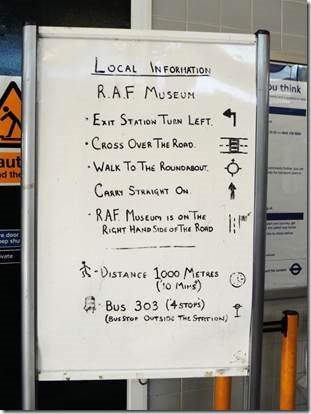 LOCAL INFORMATION
R.A.F. MUSEUM
· EXIT STATION TURN LEFT.
· CROSS OVER THE ROAD.
· WALK TO THE ROUNDABOUT.
CARRY STRAIGHT ON.
· R.A.F. MUSEUM IS ON THE
RIGHT HAND SIDE OF THE ROAD
- DISTANCE 1000 METRES
(10 MINS)
- BUS 303 (4 STOPS)
(BUS STOP OUTSIDE THE STATION)
you think